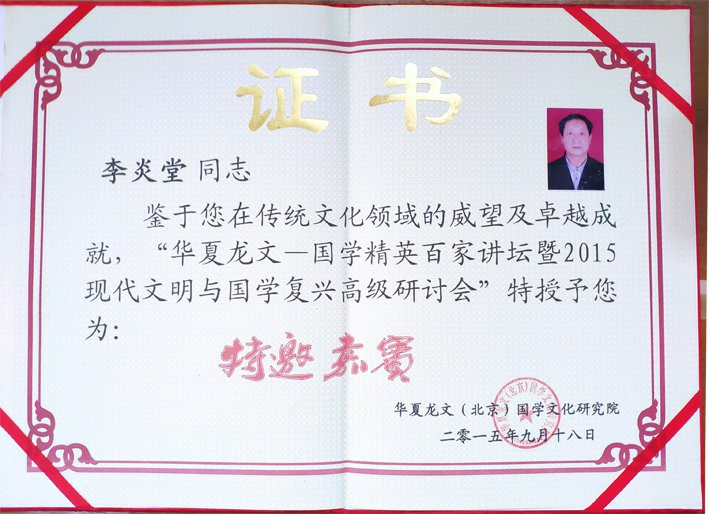 证书
李炎堂 同志
鉴于您在传统文化领域的威望及卓越成
就，“华夏龙文—国学精英百家讲坛暨2015
现代文明与国学复兴高级研讨会”特授予您
为：
特邀嘉宾
华夏龙文（北京）国学文化研究院
二零一五年九月十八日